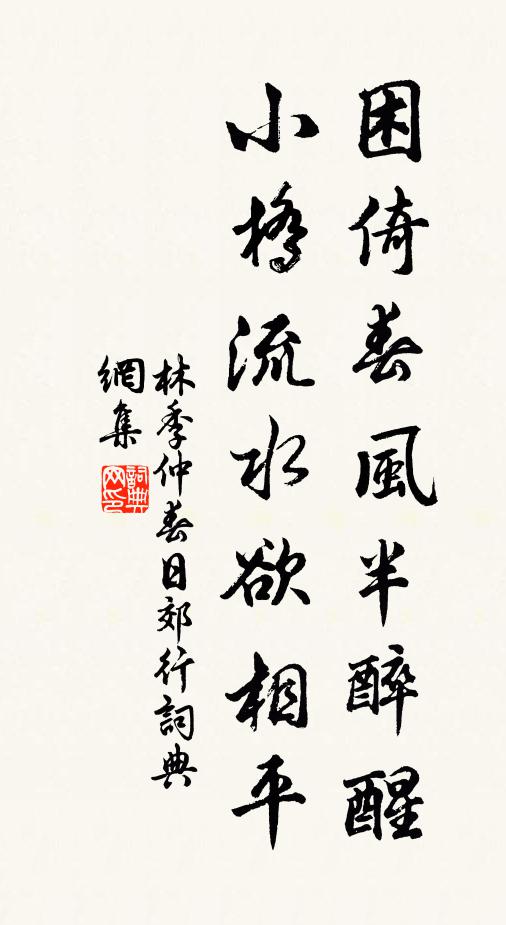 困倚春風半醉醒
小橋流水欲相平
林季仲春日郊行詞典
網集
詞典網印